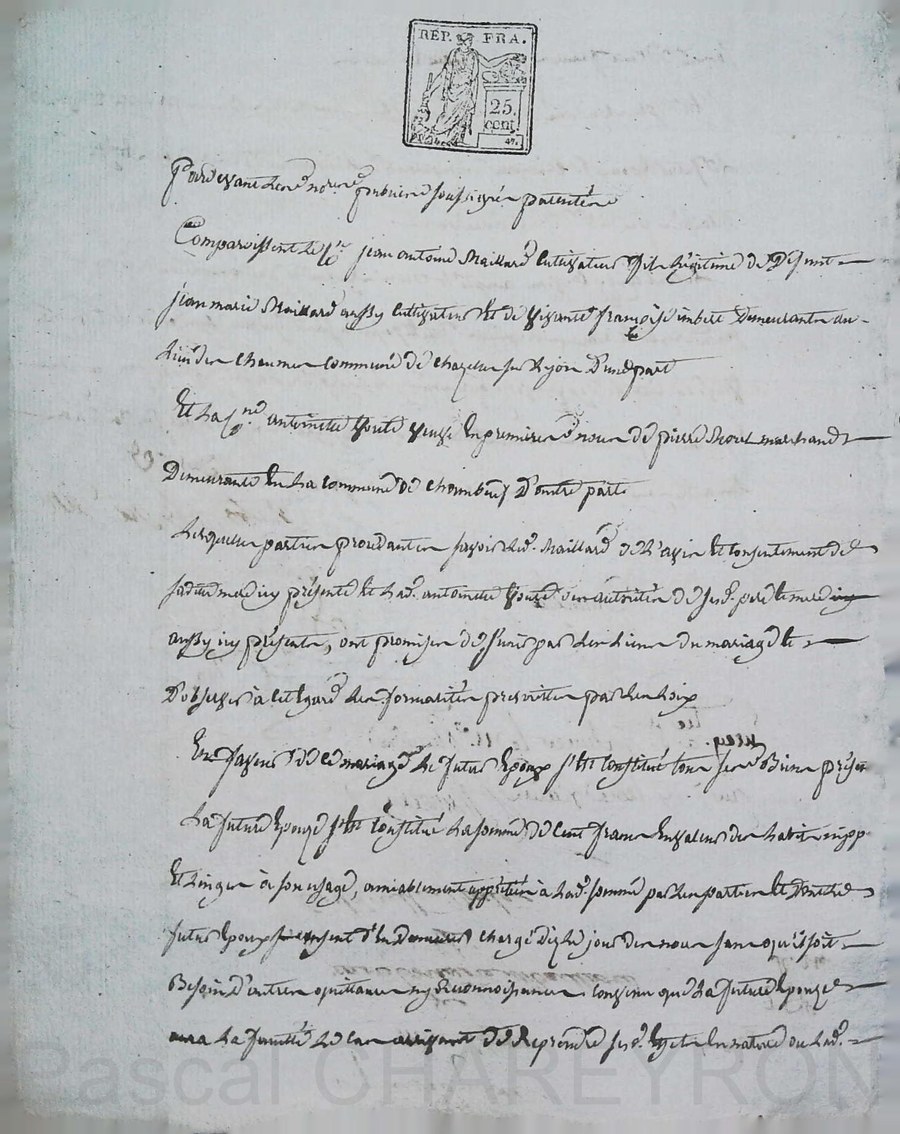 REP. FRA.
25.
cent.
Pardevant Les nores publics soussignés patentés
Comparoissent Le Cn. jean antoine Maillard Cultivateur fils légitime de Defunt
jean marie Maillard aussy Cultivateur Et de vivante françoise imbert Demeurants au
Lieu des Chaumes Commune de Chazelles sur Lyon D'une part
Et La Cne antoinette veuve En premieres noces de pierre marchand
Demeurante En La Commune de Chambœuf D'autre part
Lesquelles parties procedantes savoir Led. Maillard de L'avis Et Consentement de
sadite mere icy présente Et Lad. antoinette de son autorité de
aussy icy présents, ont promis de s'unir par Les Liens du mariage Et
D'observer à Cet Egard Les formalités prescrittes par Les Loix
En faveur de Ce mariage Le futur Epoux s'est Constitué tous ses Biens
La future Epouze s'est Constitué La somme de Cent francs En valeur des habits
Et Linges à son usage, amiablement appréciés à Lad. somme par Les parties Et Dont Le
futur Epoux chargé Dès Le jour des noces sans qu'il soit
Besoin d'autres quittance ny Reconnoissance. Convenu que La future Epouze
aura La faculté Le Cas arrivant de Reprendre ses d. Effets En nature ou Lad.
Pascal CHAREYRON